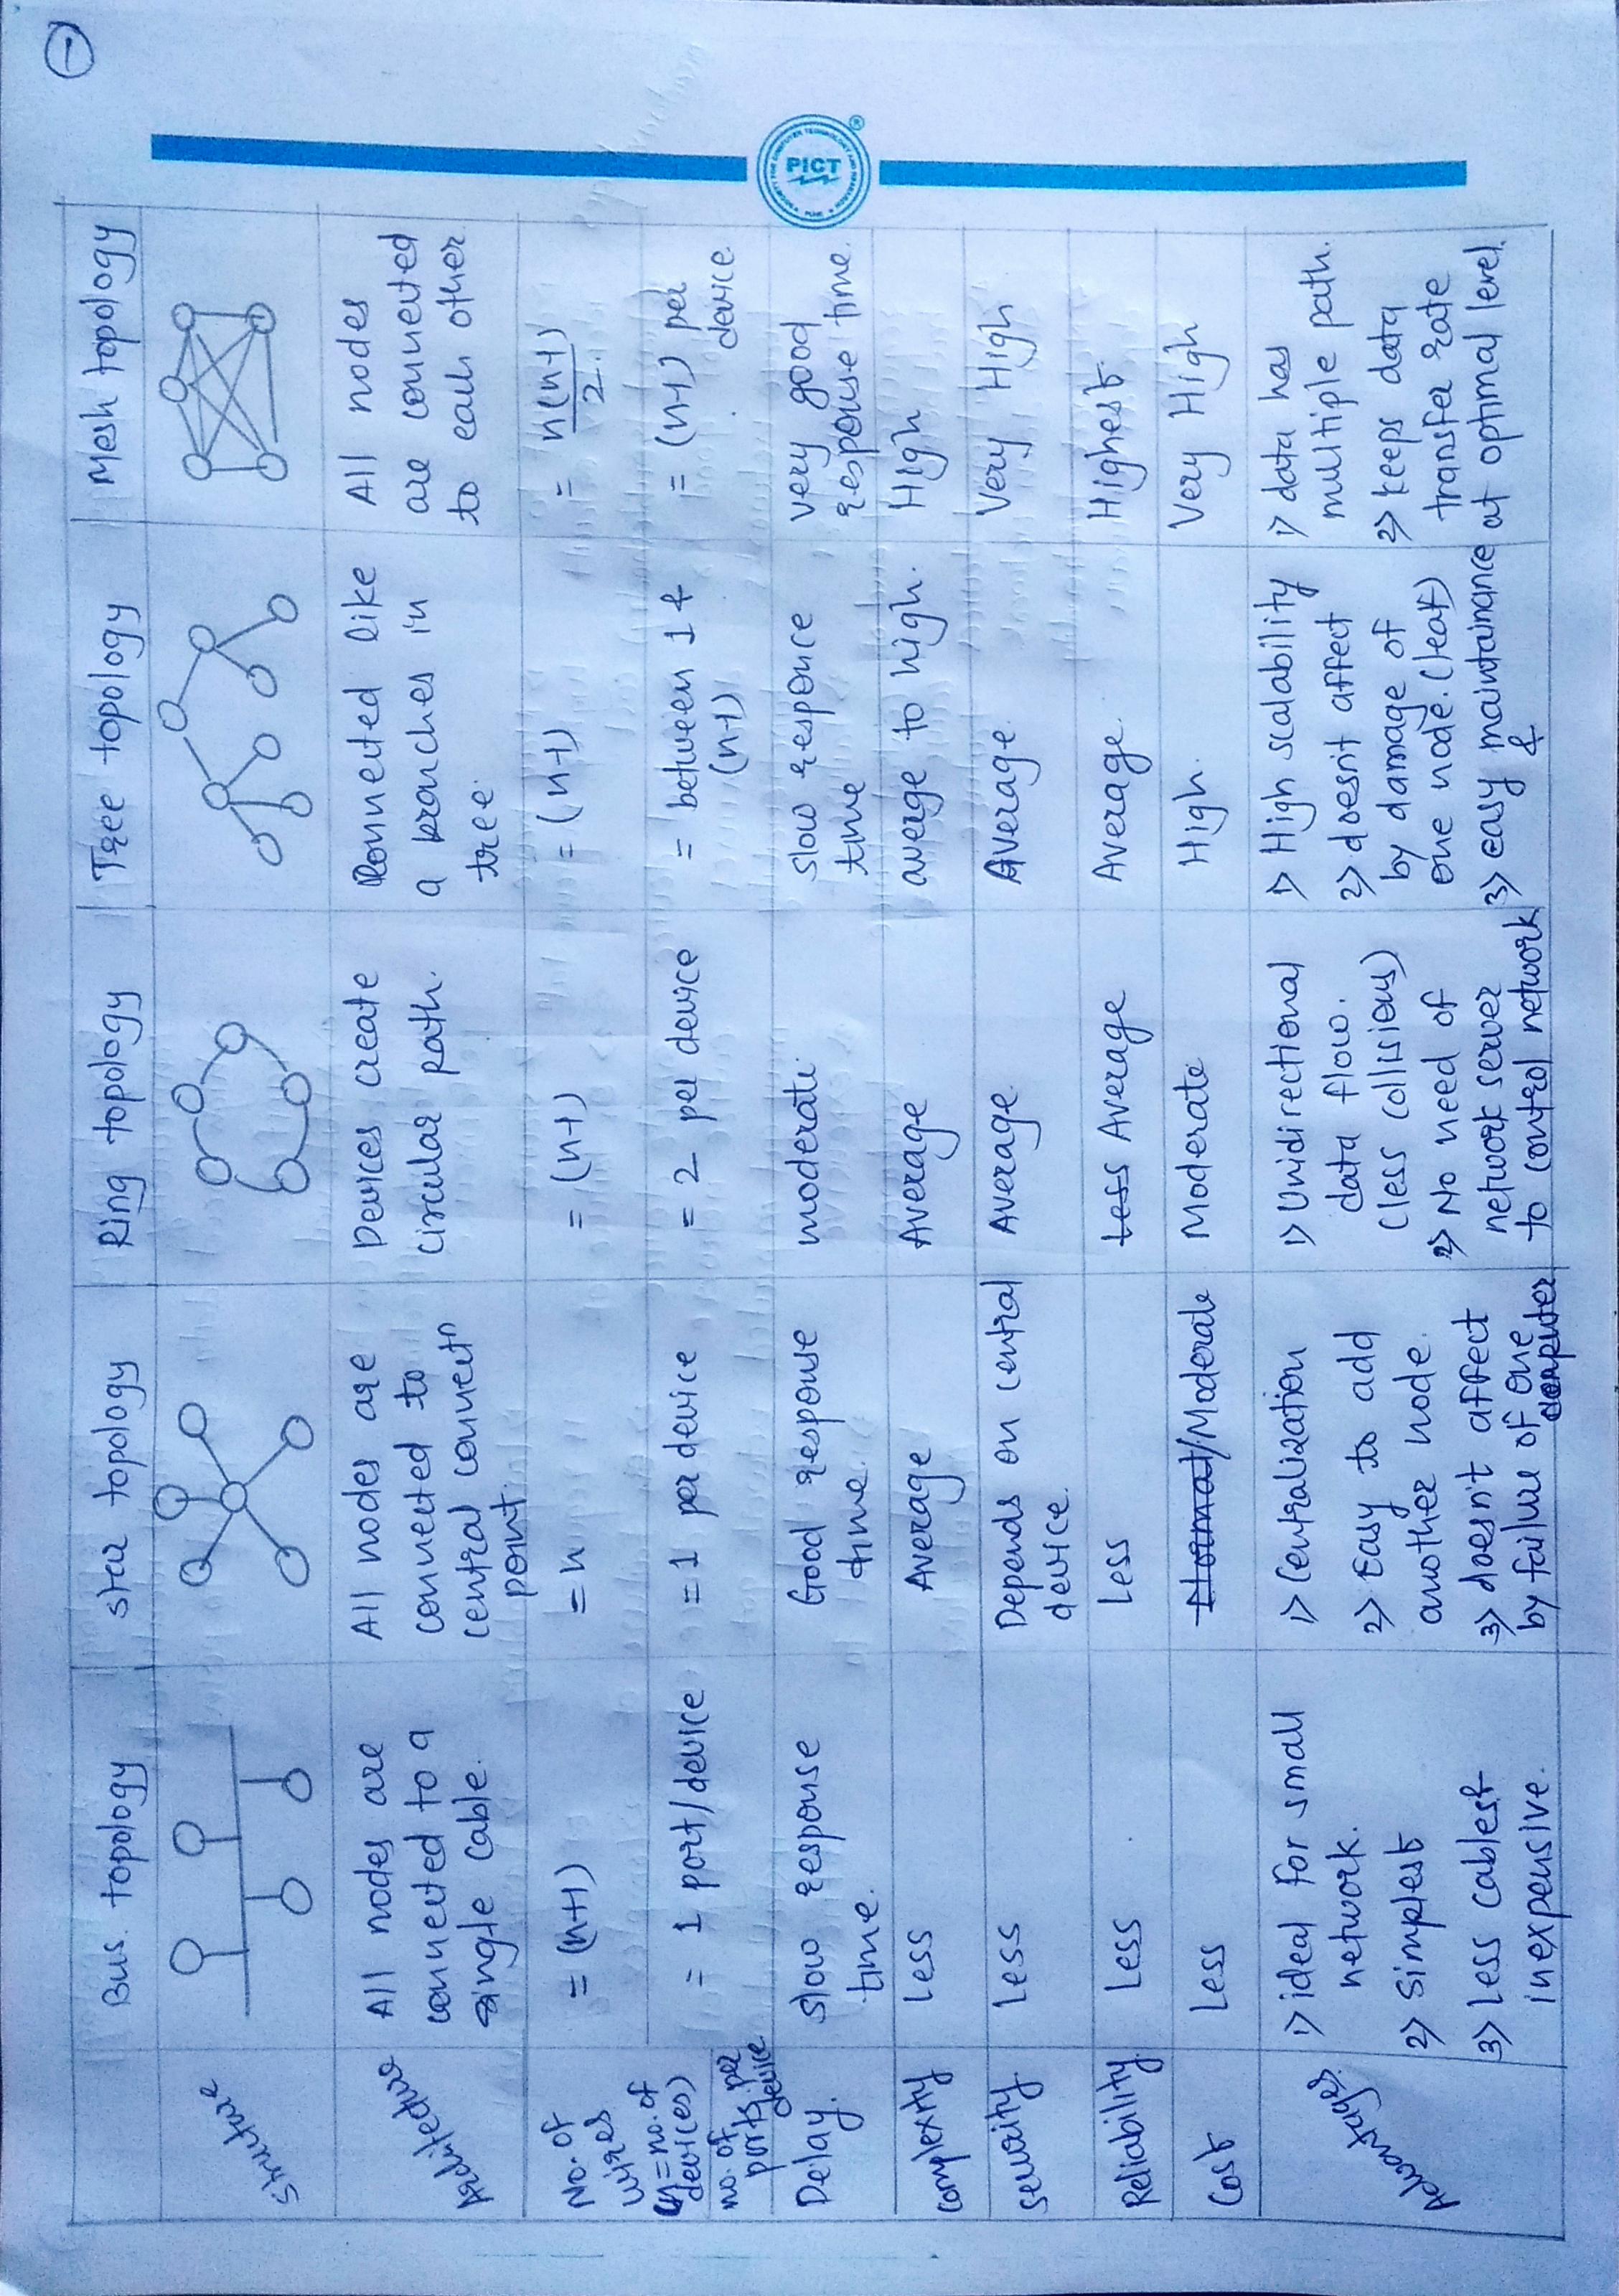 1
PICT
Bus topology
star topology
Ring topology
Tree topology
Mesh topology
structure
Architecture
All nodes are
connected to a
single cable.
All nodes are
connected to
central connectn
point.
Devices create
circular path.
Connected like
a branches in
tree.
All nodes
are connected
to each other
No. of
wires
(n=no. of
devices)
= (n+1)
= n
= (n+1)
= (n+1)
= n(n+1)
2.
no. of
ports per
device
= 1 port/device
= 1 per device
= 2 per device
= between 1 &
(n+1)
= (n+1) per
device.
Delay.
slow response
time.
Good response
time.
moderate.
slow responce
time
very good
response time.
complexity
Less
Average
Average
averge to high.
High
security
Less
Depends on central
device.
Average
Average
Very High
Reliability
Less
Less
Less Average
Average.
Highest.
Cost
Less
Normal/Moderate
Moderate
High.
Very High
Advantages.
1) ideal for small
network.
2) simplest
3) Less cables &
inexpensive.
1) Centralization
2) Easy to add
another node.
3) doesn't affect
by failure of one
computer
1) Unidirectional
data flow.
(less collisions)
2) No need of
network server
to control network
1) High scalability
2) doesn't affect
by damage of
one node. (leaf)
3) easy maintainance
&
1) data has
multiple path.
2) keeps data
transfer rate
at optimal level.